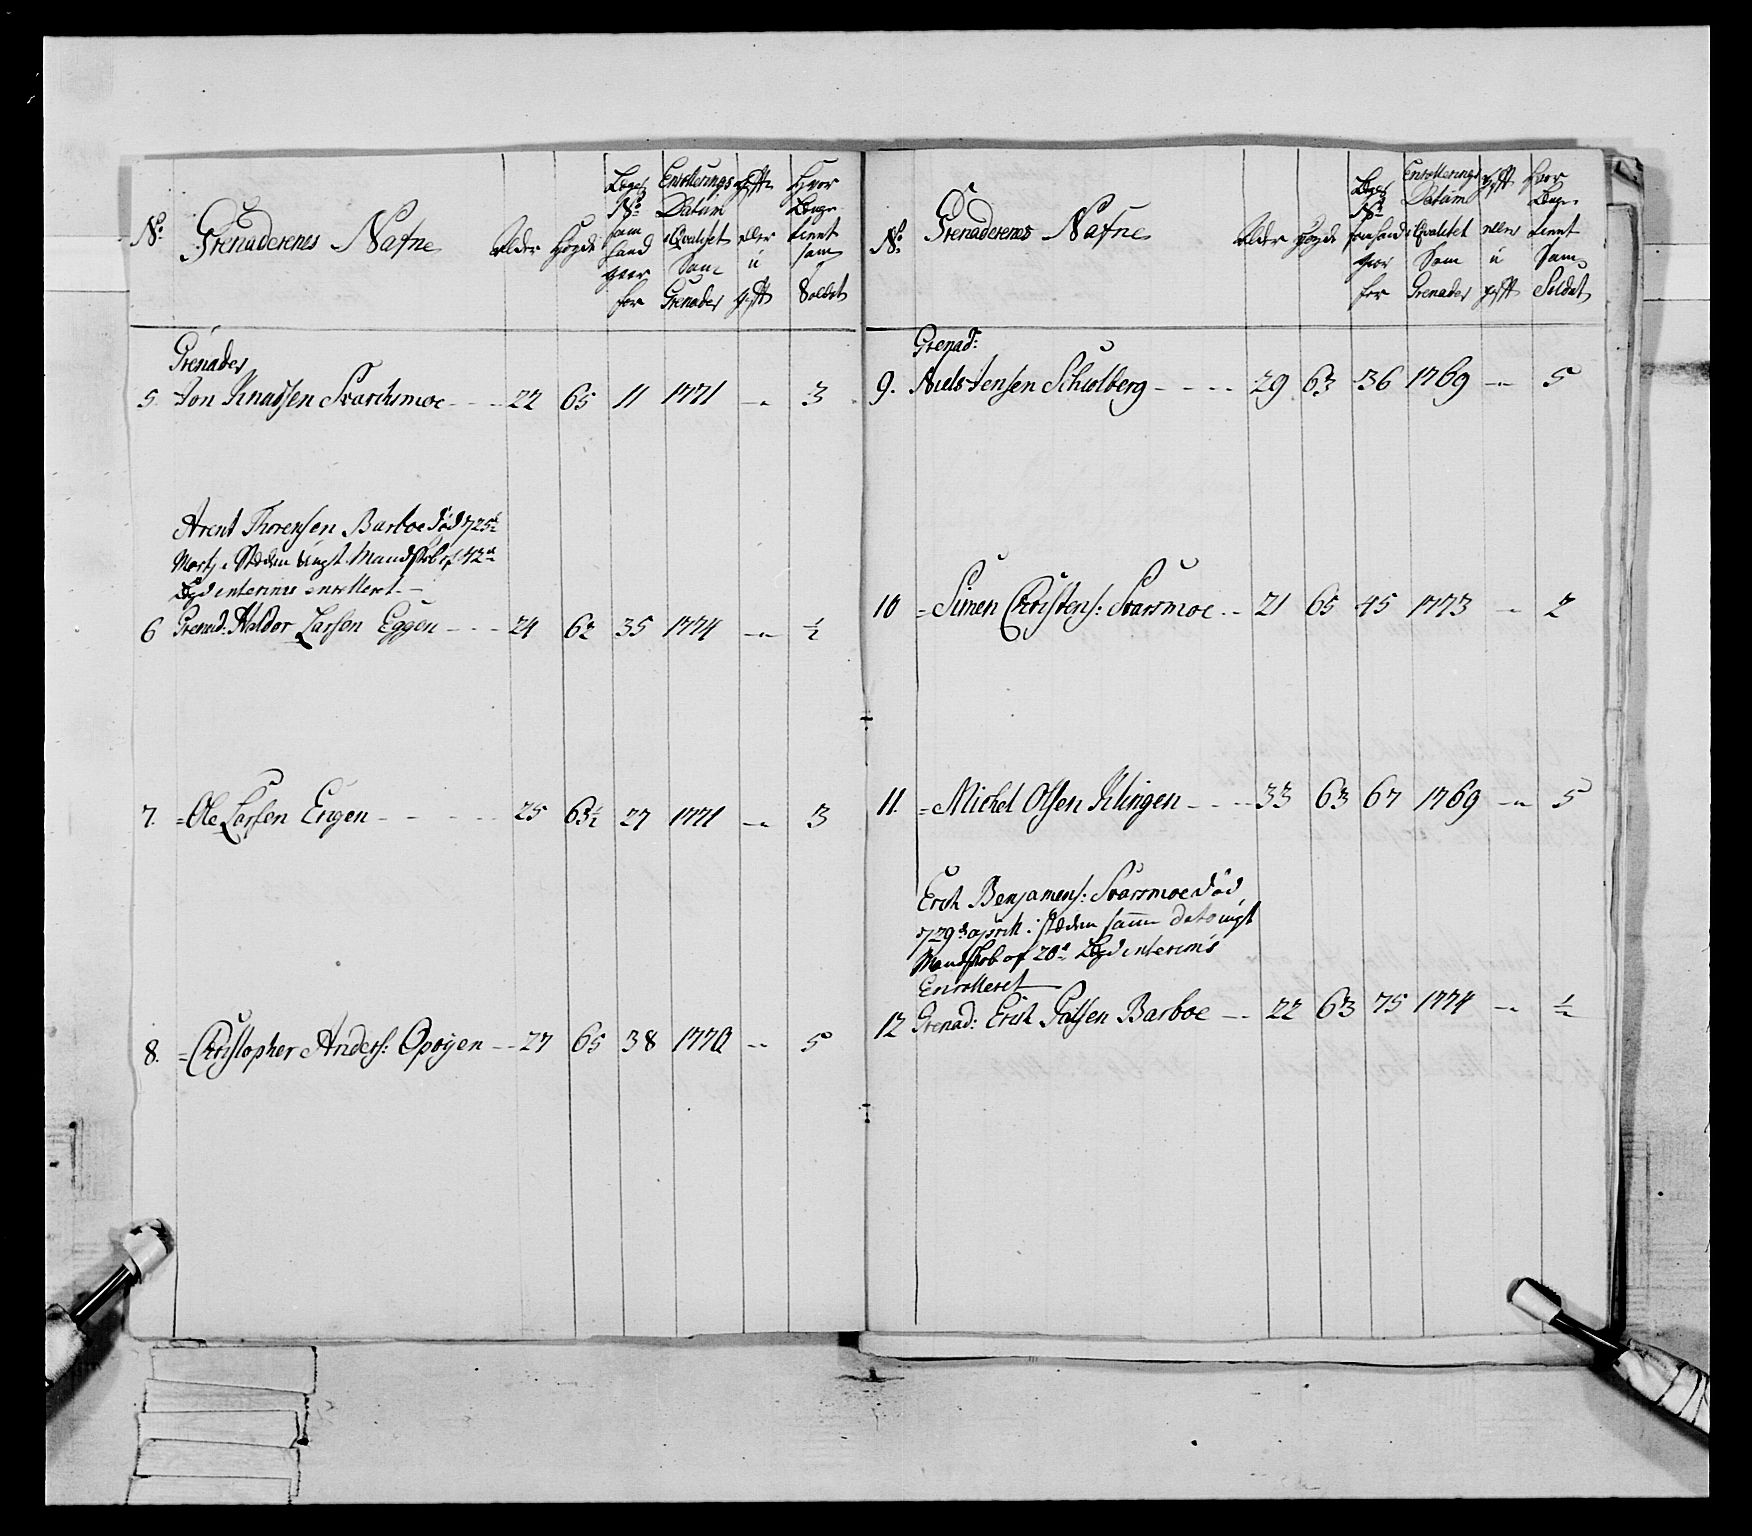 No.
Grenaderenes Nafne
Alder
Høyde
Læges
No.
som
hand
gaar
for
Enrollerings
Datum
i Qvalitet
Som
Grenader
gift
eller
u
gift
Hvor
Længe
tient
som
Soldat
Grenader
5. Jon Knudsen Svartismoe 22 65 11 1771 — 3
Arent Thorensen Barboe død
Lægd interims enrolleret
6 Grenad: Haldor Larsen Eggen 24 62 35 1774 — ½
7. = Ole Larsen Engen 25 63½ 27 1771 — 3
8. = Christopher Anders: Opøyen 27 65 38 1770 — 5
No.
Grenaderenes Nafne
Alder
Høyde
Læges
No.
som hand
gaar
for
Enrollerings
Datum
i Qvalitet
Som
Grenader
gift
eller
u
gift
Hvor
Længe
tient
Som
Soldat
Grenad:
9. Niels Jensen Schiolberg 29 63 36 1769 — 5
10 = Simen Christens: Svarsmoe 21 65 45 1773 — 2
11. = Michel Olsen Klingen 33 63 67 1769 — 5
Erich Benjamens: Svarsmoe død
29de april: i stæden samme dato ungt
Mandskob af 20de Lægd interims
Enrolleret
12 Grenad: Erich Palsen Barboe 22 63 75 1774 — ½